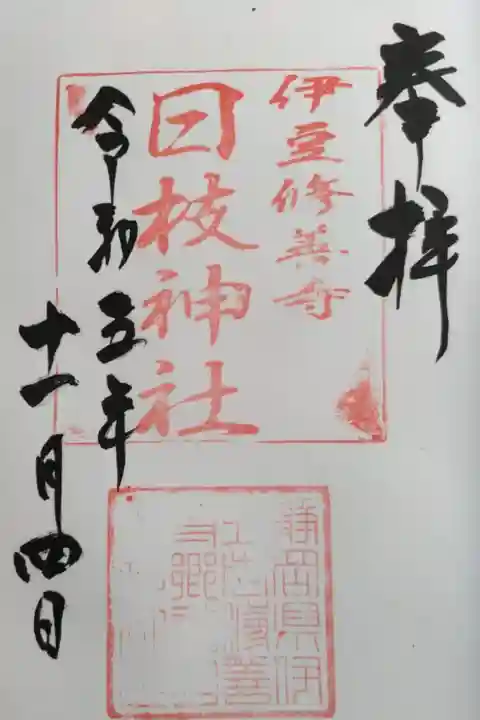 奉拝
伊豆修善寺
日枝神社
令和五年
十一月四日
静岡県伊
修善